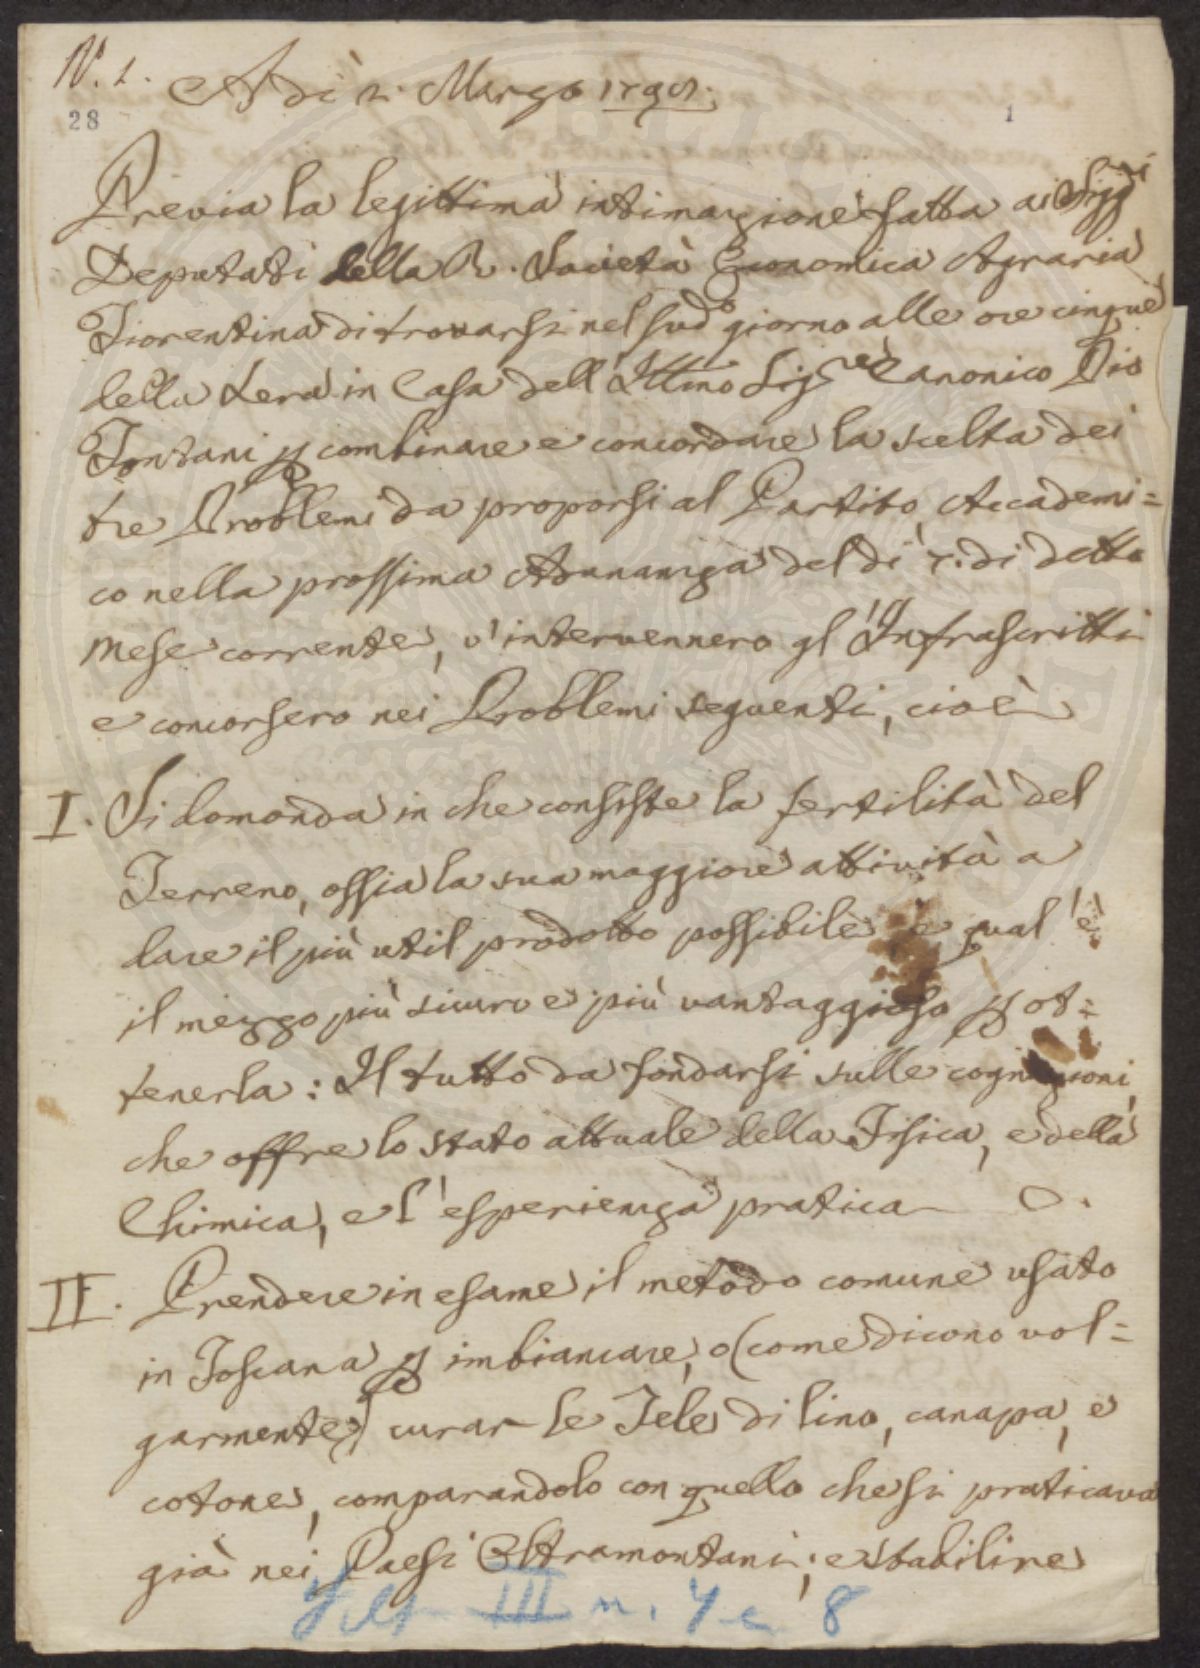 N.° 1.
Adì 2. Marzo
28
1
Previa la legittima intimazione fatta ai Sigg.ri
Deputati della R. Società Economica Agraria
Fiorentina di trovarsi nel sud.o giorno alle ore cinque
della sera in Casa dell Ill.mo Sig.re Canonico Pio
Fontani p combinare e concordare la scelta dei
tre Problemi da proporsi al Partito Accademi=
co nella prossima Adunanza del dì 7. di detto
mese corrente, v'intervennero gl'Infrascritti
e concorsero nei Problemi seguenti, cioè
I. Si domanda in che consiste la fertilità del
Terreno, ossia la sua maggiore attività a
dare il più util prodotto possibile e qual'è
il mezzo più sicuro e più vantaggioso p ot=
tenerla: Il tutto da fondarsi sulle cognizioni,
che offre lo stato attuale della Fisica, e della
Chimica, e l'esperienza pratica
II. Prendere in esame il metodo comune usato
in Toscana p imbiancare, o (come dicono vol=
garmente) curar le Tele di lino, canapa, e
cotone, comparandolo con quello che si praticava
già nei Paesi Oltramontani; e stabilire
III n. 7 e 8